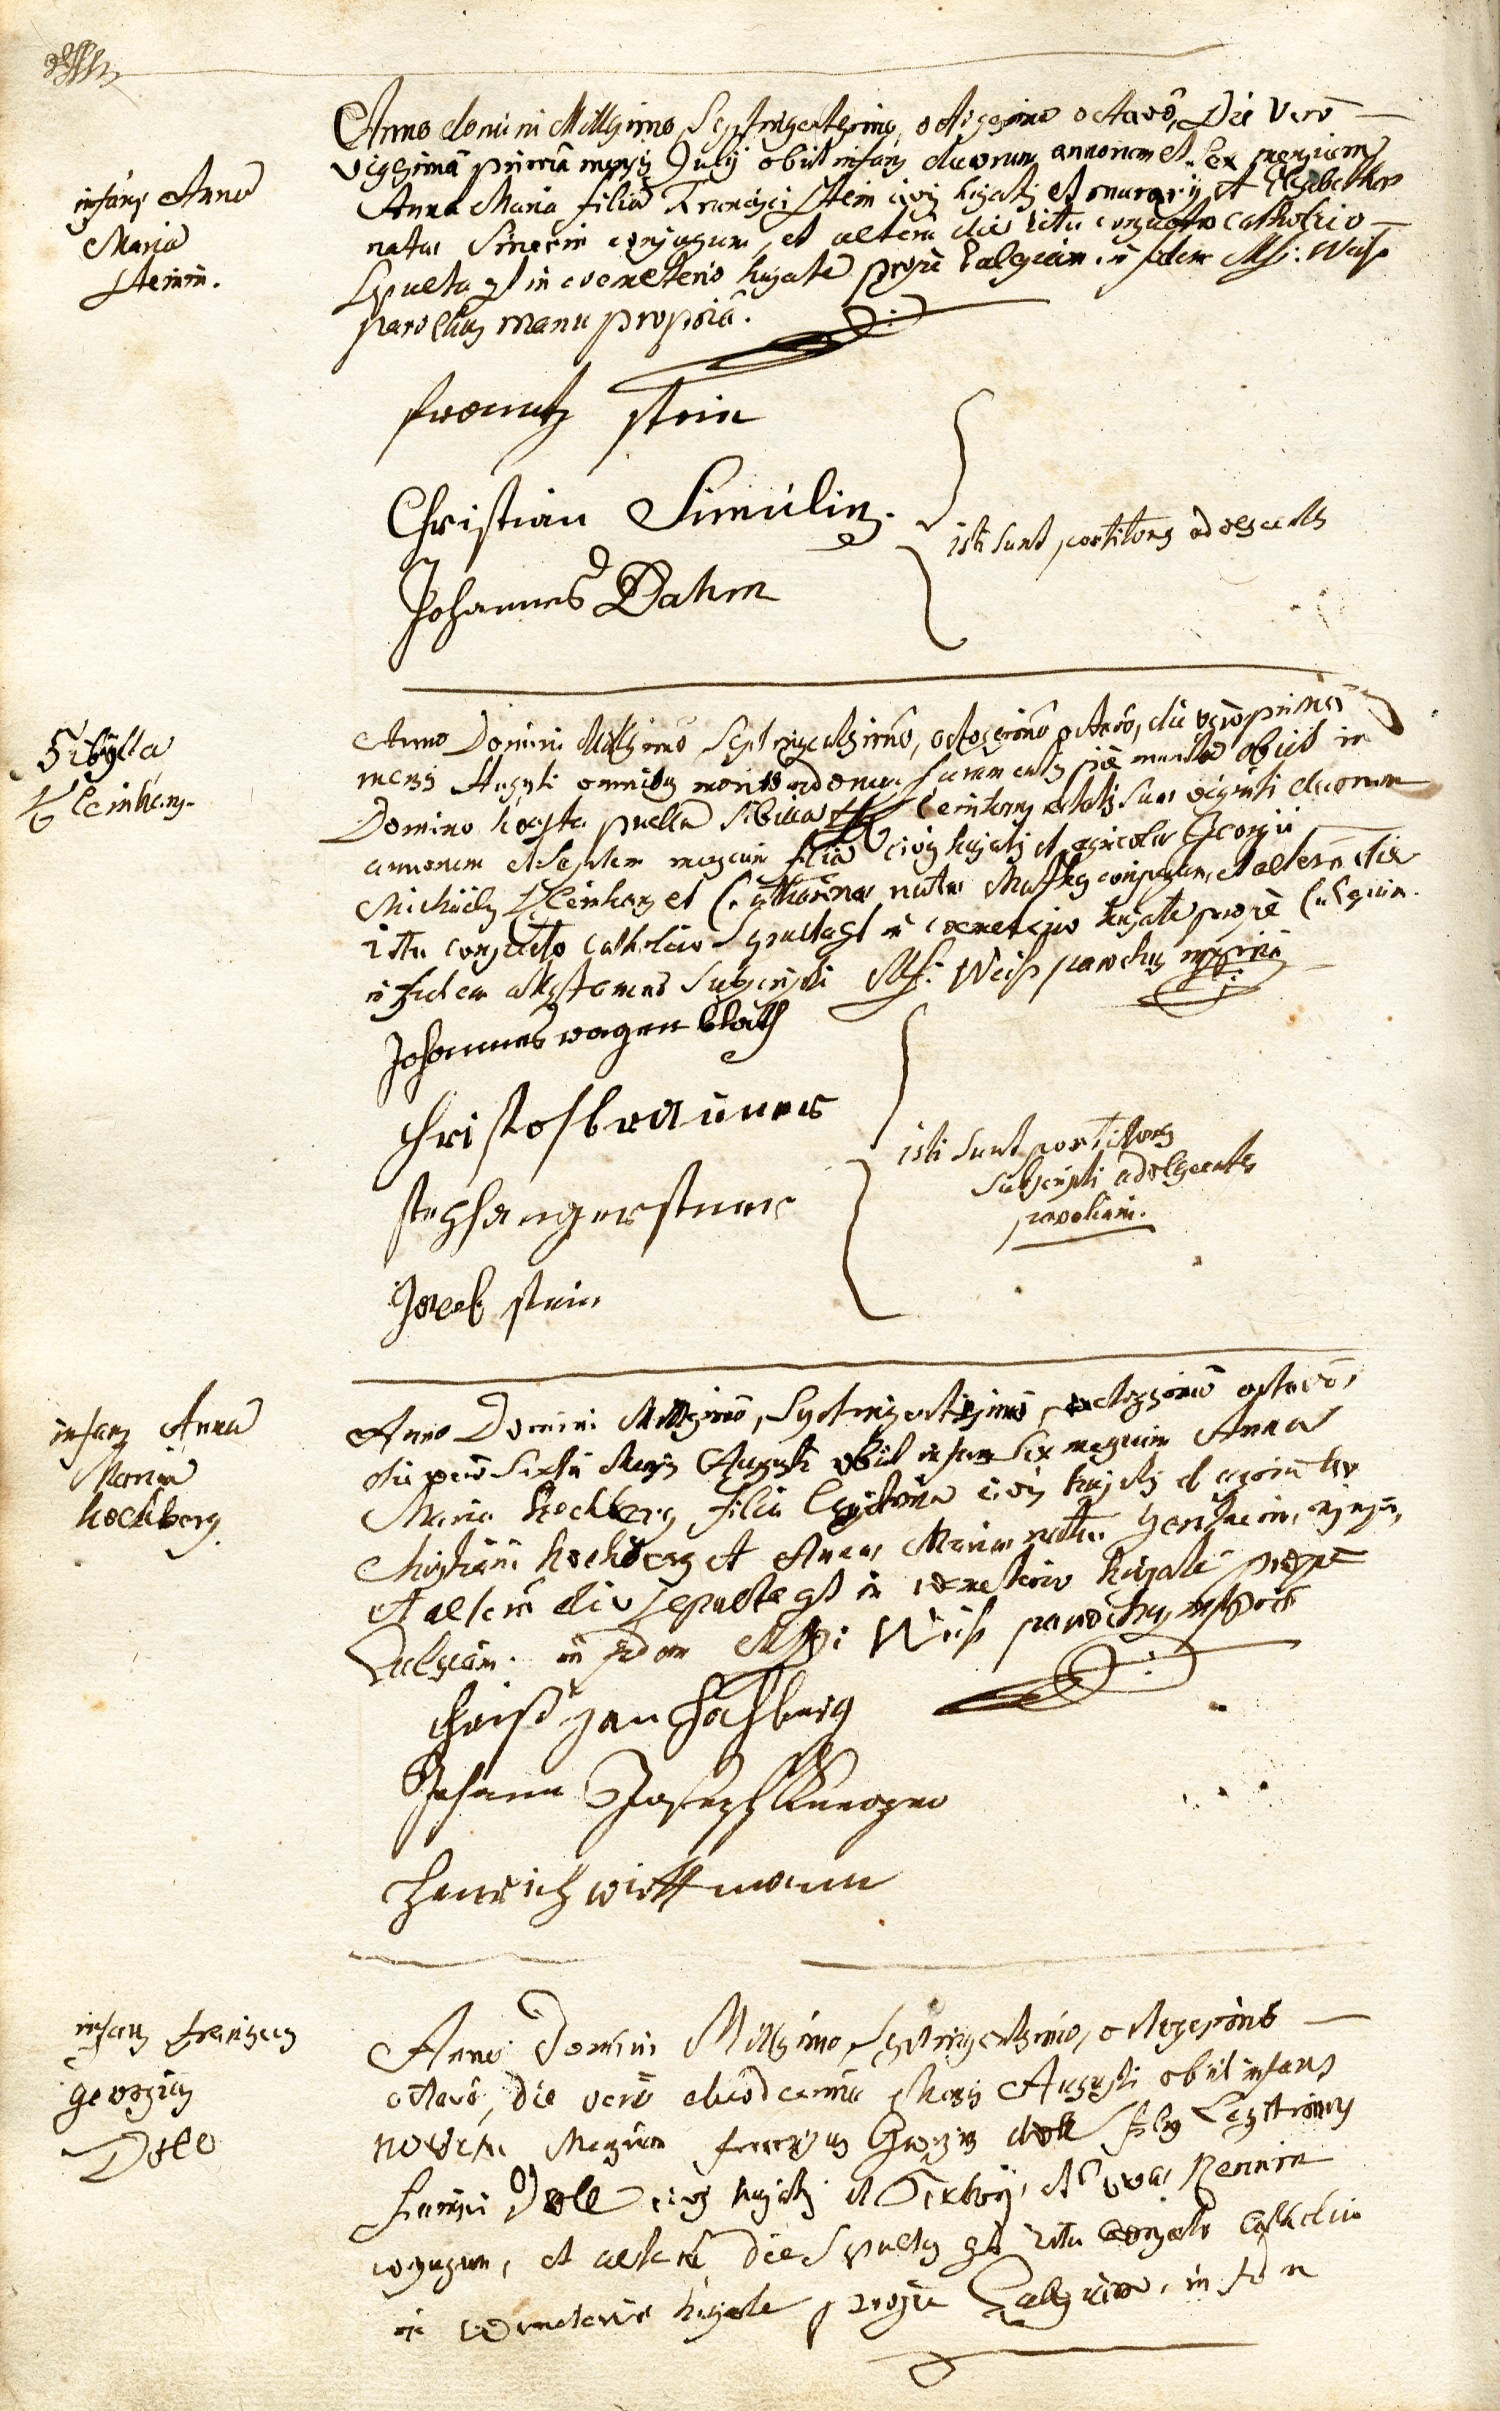 infans Anna
Maria
Steinin.
Anno domini Millesimo, Septingentesimo, octogesimo octavo, Die vero
vigesima prima mensis July obiit infans duorum annorum et sex mensium
Anna Maria filia Francisci Stein civis hujatis et murary et Elisabethae
natae conjugum, et altera die ritu consueto catholico
Sepulta est in coemeterio hujate prope Ecclesiam. in fidem Mf: Weiss
parochus manu propria.
frantz stein
Christian Simülin.
Johannes Dahm
isti sunt portitores adolescentes
Sibÿlla
Kleinhans.
Anno Domini Millesimo Septingentesimo, octogesimo octavo, die vero prima
mensis Augusti omnibus moribundorum Sacramentis pie munita obiit in
Domino honesta puella Sibilla Kleinhans aetatis suae viginti duorum
annorum et septem mensium filia civis hujatis et agricolae Georgii
Michaelis Kleinhans et Catharinae natae conjugum, et altera die
ritu consueto catholico Sepulta est in coemeterio hujate prope Ecclesiam.
in fidem attestamus Subscripti Mf: Weiss parochus mppria
Johannes wagen blath
Christof brauner
stephan gerstner
Jacob stein
isti sunt portitores
Subscripti adolescentes
parochiani.
infans Anna
Maria
hochberg.
Anno Domini Millesimo, Septingentesimo, octogesimo octavo,
die vero sexta Mensis Augusti obiit infans sex mensium Anna
Maria hochberg filia legitima civis hujatis et agricolae
Christiani hochberg et Annae Mariae natae conjugum,
et altera die sepulta est in coemeterio hujate prope
Ecclesiam. in fidem Mf: Weiss parochus mpria
Johann Joseph
Henrich wittmann
infans franciscus
georgius
Doll
Anno Domini Millesimo Septingentesimo, octogesimo
octavo, die vero duodecima Mensis Augusti obiit infans
novem Mensium franciscus Georgius doll filius Legitimus
francisci Doll civis hujatis et Textoris, et Evae
conjugum, et altera die Sepultus est ritu consueto Catholico
in coemeterio hujate prope Ecclesiam, in fidem